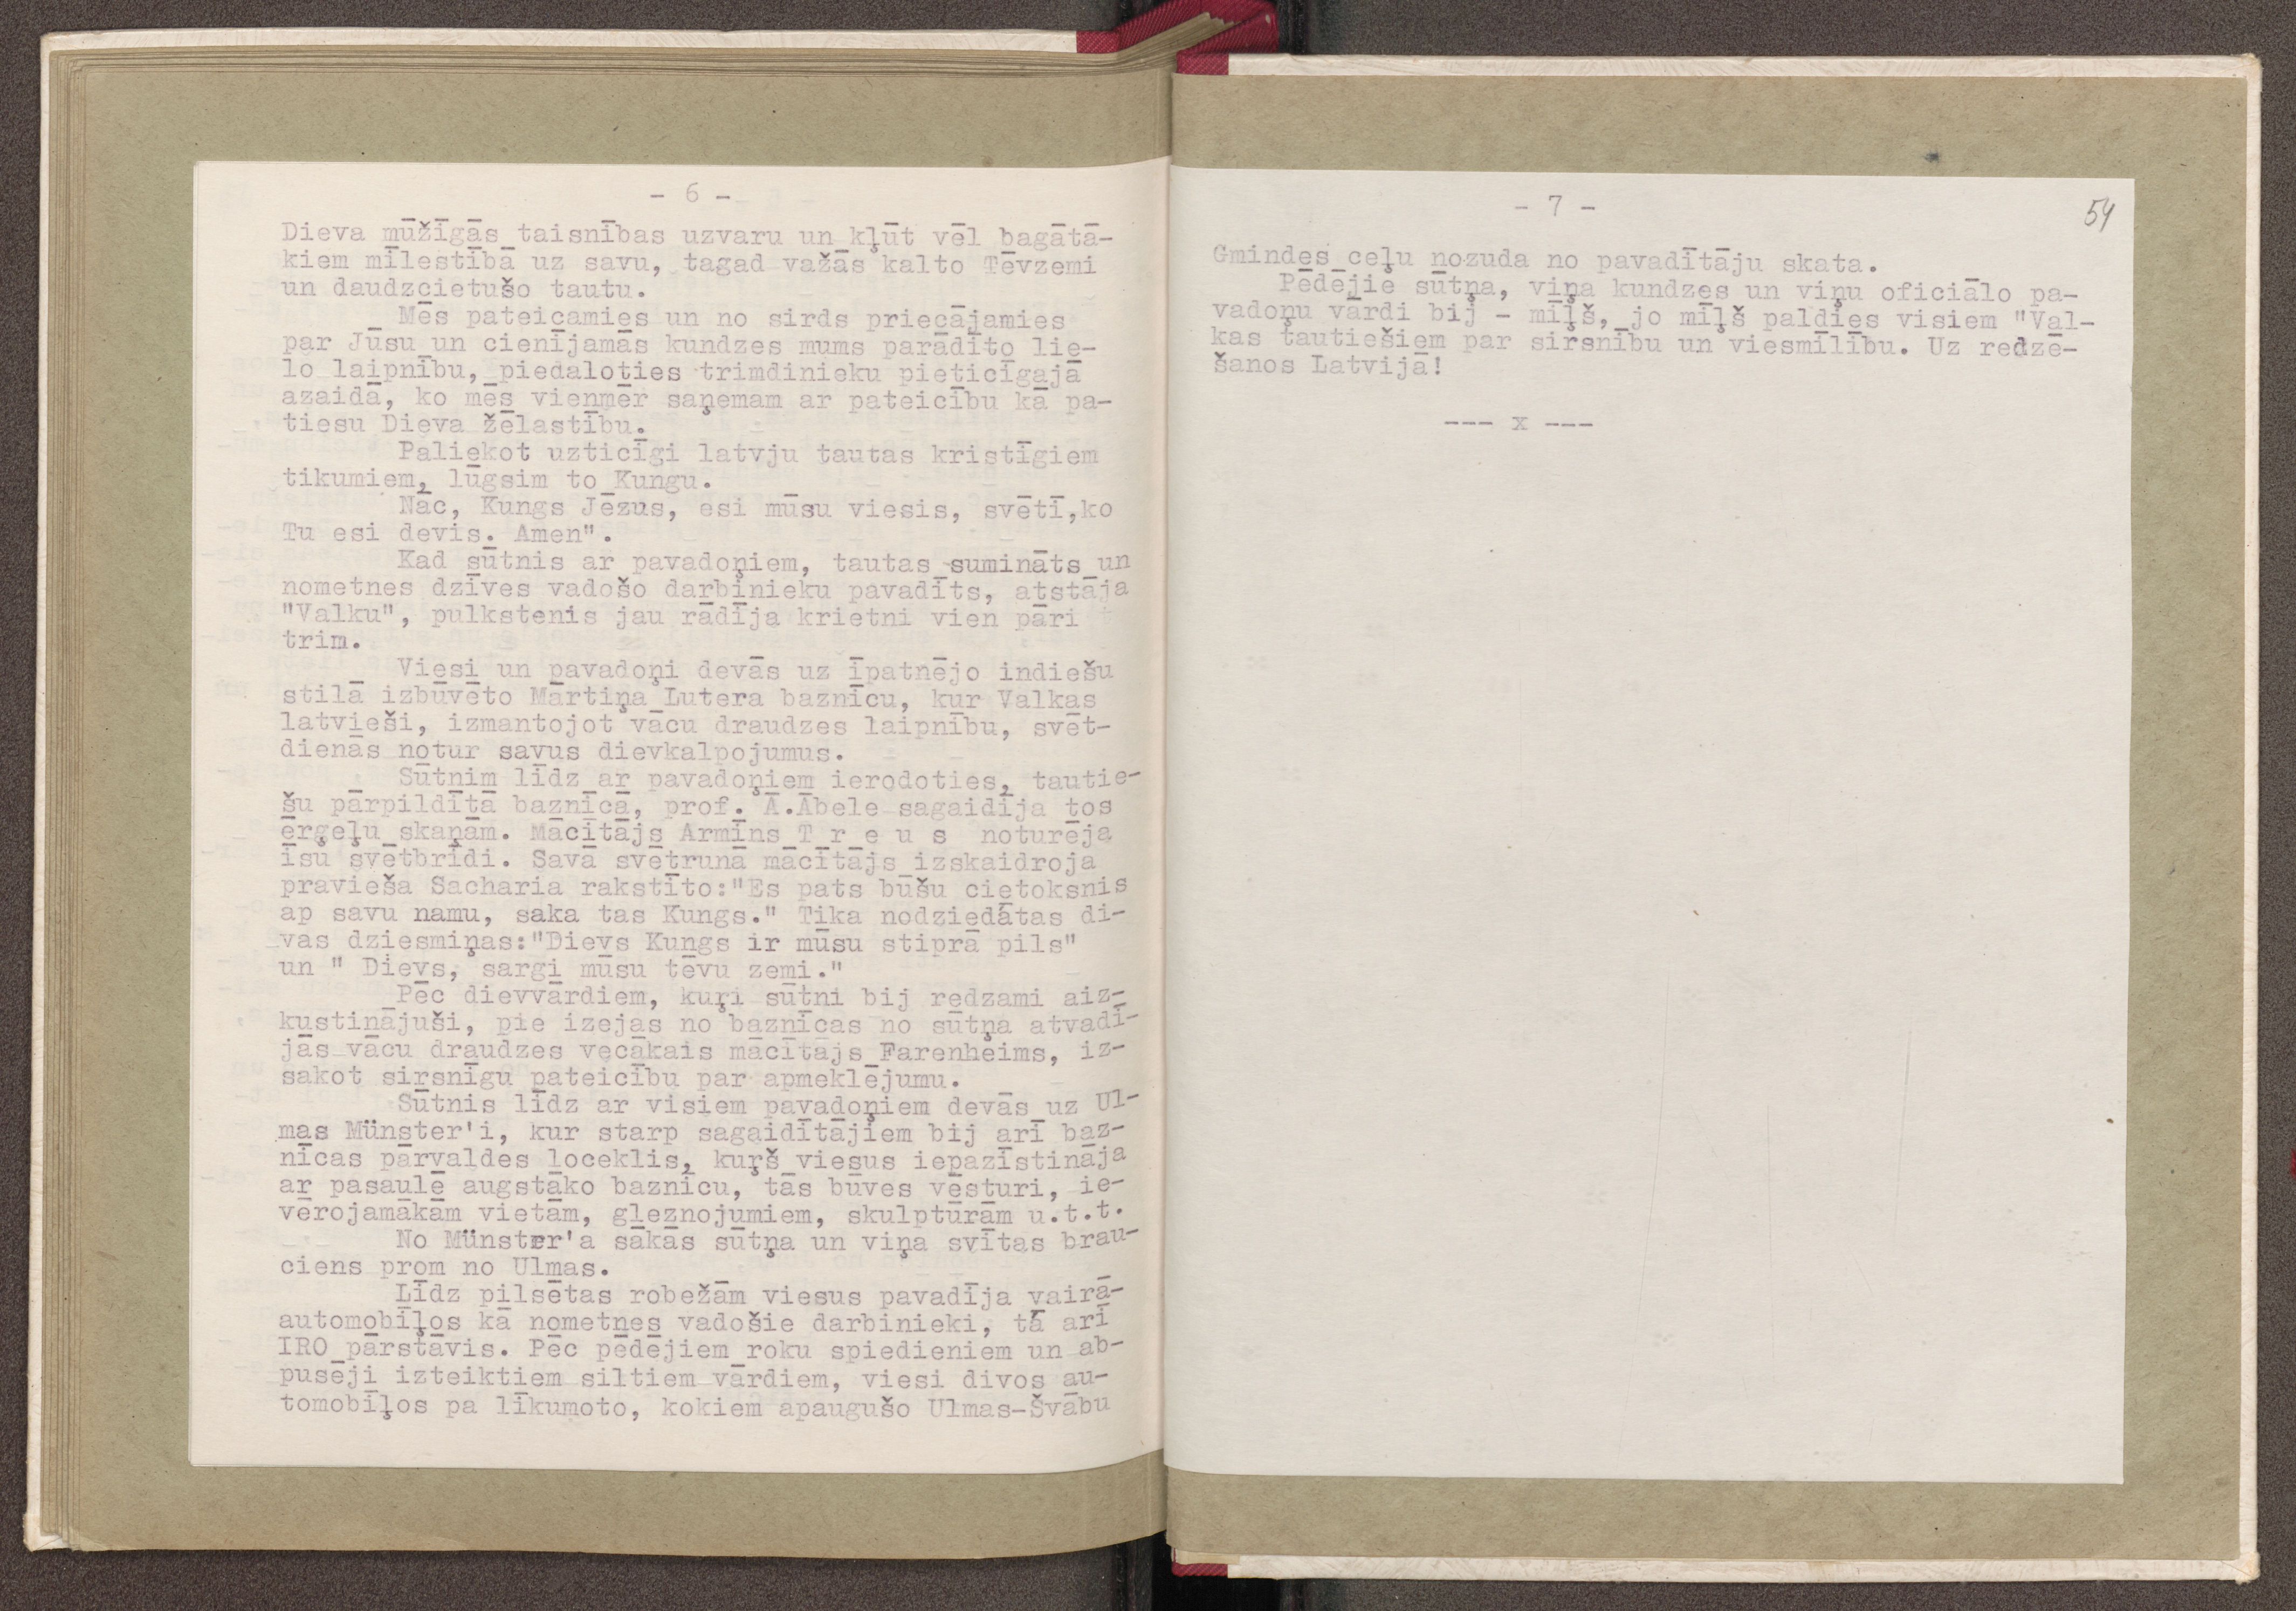 - 6 -
Dieva mūžīgās taisnības uzvaru un kļūt vēl bagātā-
kiem mīlestībā uz savu, tagad važās kalto Tēvzemi
un daudzcietušo tautu.
Mēs pateicamies un no sirds priecājamies
par Jūsu un cienījamās kundzes mums parādīto lie-
lo laipnību, piedaloties trimdinieku pieticīgajā
azaidā, ko mēs vienmēr saņemam ar pateicību kā pa-
tiesu Dieva žēlastību.
Paliekot uzticīgi latvju tautas kristīgiem
tikumiem, lūgsim to Kungu.
Nāc, Kungs Jēzus, esi mūsu viesis, svētī,ko
Tu esi devis. Amen".
Kad sūtnis ar pavadoņiem, tautas sumināts un
nometnes dzīves vadošo darbinieku pavadīts, atstāja
"Valku", pulkstenis jau rādīja krietni vien pāri
trim.
Viesi un pavadoņi devās uz īpatnējo indiešu
stilā izbūvēto Mārtiņa Lutera baznīcu, kur Valkas
latvieši, izmantojot vācu draudzes laipnību, svēt-
dienās notur savus dievkalpojumus.
Sūtnim līdz ar pavadoņiem ierodoties, tautie-
šu pārpildītā baznīcā, prof. Ā.Ābele sagaidīja tos
ērģeļu skaņām. Mācītājs Armīns T r e u s noturēja
īsu svētbrīdi. Savā svētrunā mācītājs izskaidroja
pravieša Sacharia rakstīto:"Es pats būšu cietoksnis
ap savu namu, saka tas Kungs." Tika nodziedātas di-
vas dziesmiņas:"Dievs Kungs ir mūsu stiprā pils"
un " Dievs, sargi mūsu tēvu zemi."
Pēc dievvārdiem, kuŗi sūtni bij redzami aiz-
kustinājuši, pie izejas no baznīcas no sūtņa atvadī-
jās vācu draudzes vecākais mācītājs Farenheims, iz-
sakot sirsnīgu pateicību par apmeklējumu.
Sūtnis līdz ar visiem pavadoņiem devās uz Ul-
mas Münster'i, kur starp sagaidītājiem bij arī baz-
nīcas pārvaldes loceklis, kuŗš viesus iepazīstināja
ar pasaulē augstāko baznīcu, tās būves vēsturi, ie-
vērojamākām vietām, gleznojumiem, skulptūrām u.t.t.
No Münster'a sākās sūtņa un viņa svītas brau-
ciens prom no Ulmas.
Līdz pilsētas robežām viesus pavadīja vairā-
automobiļos kā nometnes vadošie darbinieki, tā arī
IRO pārstāvis. Pēc pēdējiem roku spiedieniem un ab-
pusēji izteiktiem siltiem vārdiem, viesi divos au-
tomobiļos pa līkumoto, kokiem apaugušo Ulmas-Švābu
- 7 -
54
Gmindes ceļu nozuda no pavadītāju skata.
Pēdējie sūtņa, viņa kundzes un viņu oficiālo pa-
vadoņu vārdi bij - mīļš, jo mīļš paldies visiem "Val-
kas tautiešiem par sirsnību un viesmīlību. Uz redzē-
šanos Latvijā!
--- x ---